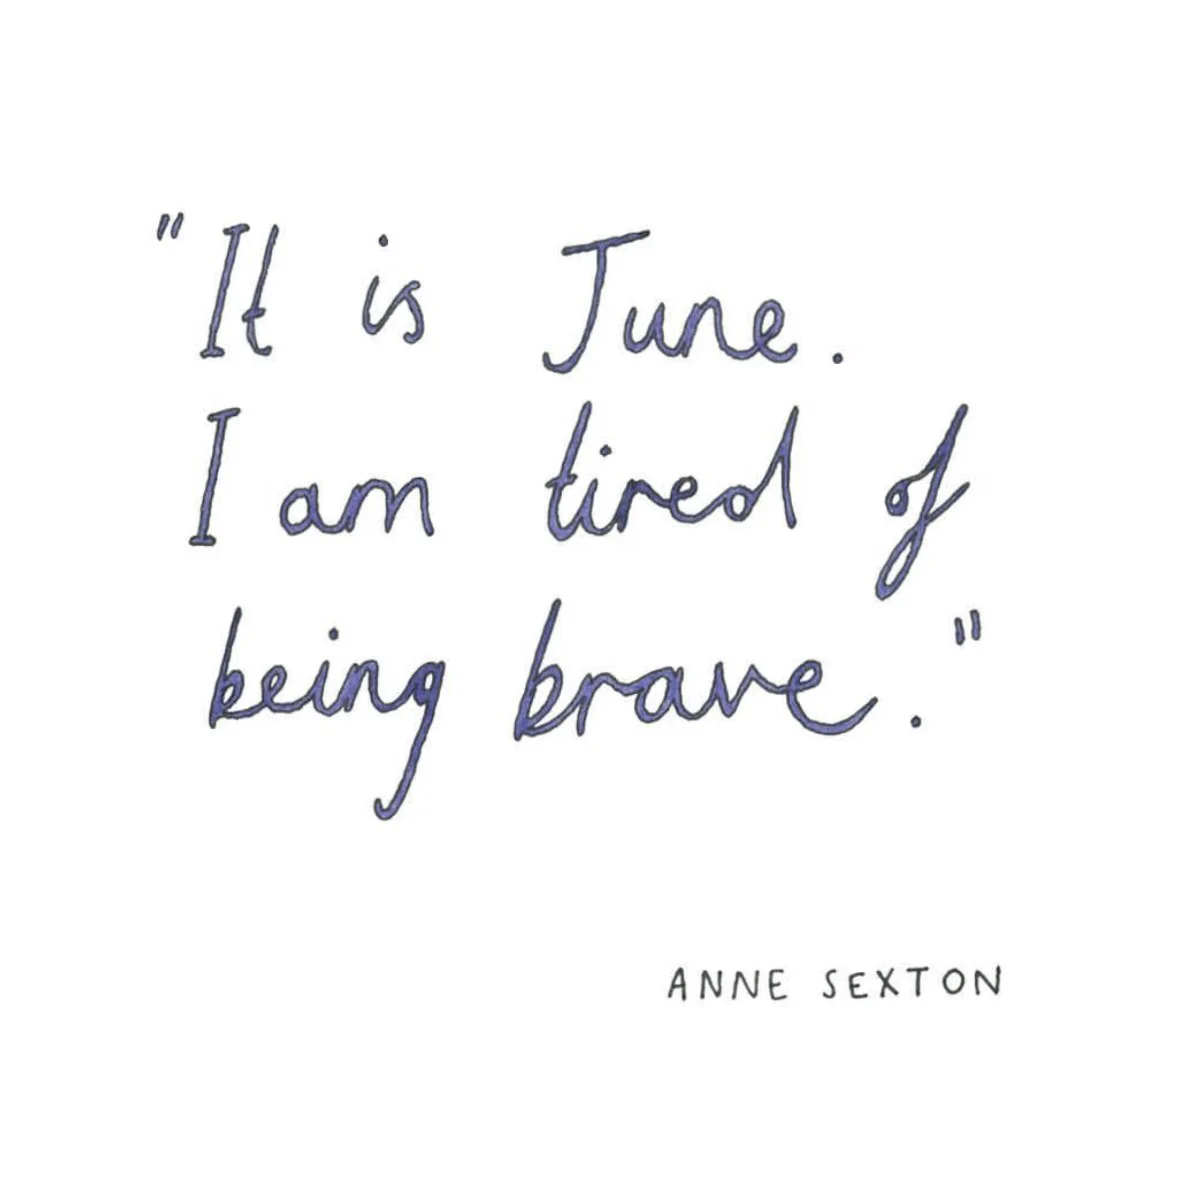 "It is June.
I am tired of
being brave."
ANNE SEXTON